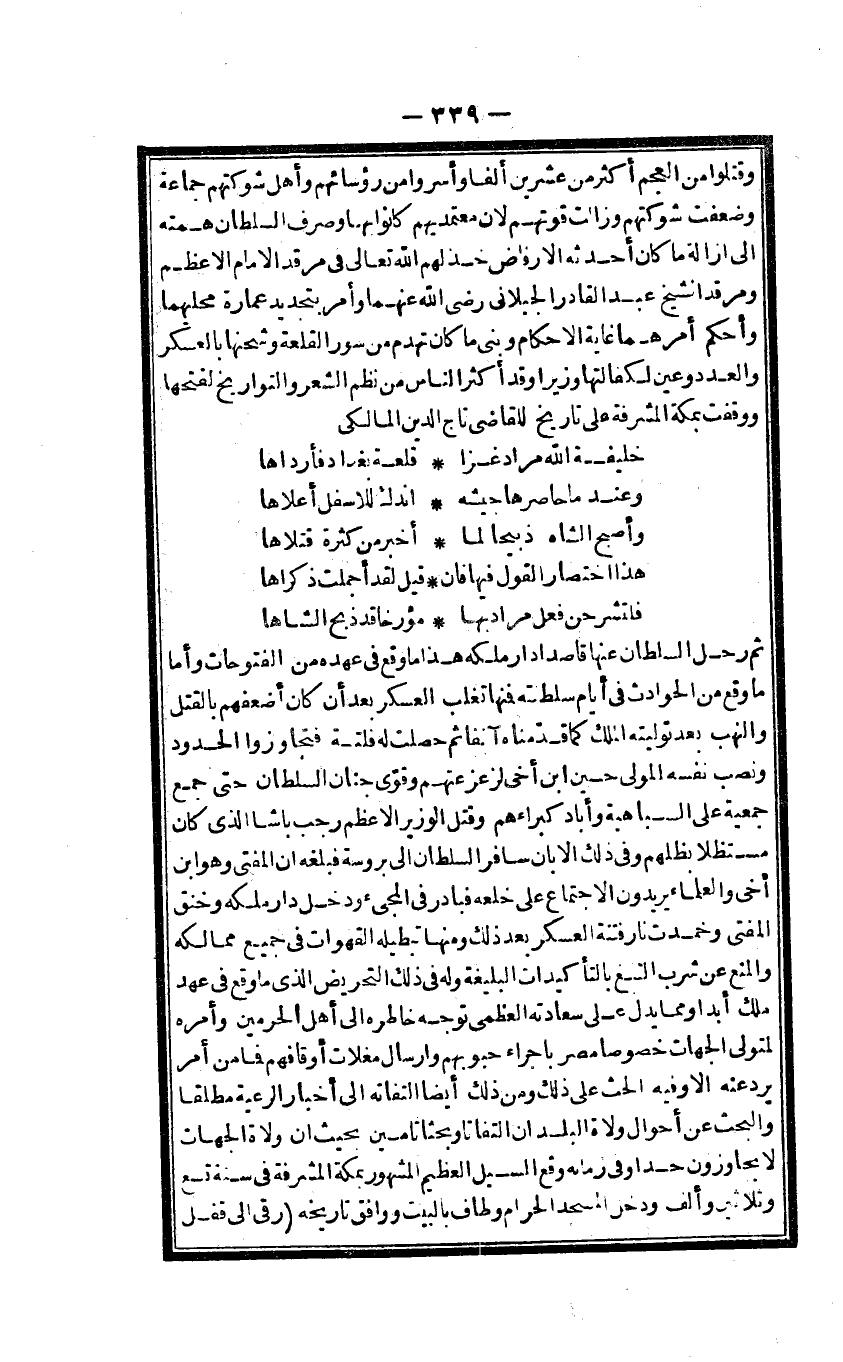 — ٣٣٩ —
وقتلوا من العجم أكثر من عشرين ألفا وأسروا من رؤسائهم وأهل شوكتهم جماعة
وضعفت شوكتهم وزالت قوتهم لان معتمديهم كانوا بها وصرف السلطان همته
الى ازالة ما كان أحدثه الارفاض خذلهم الله تعالى فى مرقد الامام الاعظم
ومرقد الشيخ عبد القادر الجيلانى رضى الله عنهما وأمر بتجديد عمارة محلهما
وأحكم أمرهما غاية الاحكام وبنى ما كان تهدم من سور القلعة وشحنها بالعسكر
والعدد وعين لكفالتها وزيرا وقد أكثر الناس من نظم الشعر والتواريخ لفتحها
ووقفت بمكة المشرفة على تاريخ للقاضى تاج الدين المالكى
خليفة الله مراد غزا * قلعة بغداد فأرداها
وعند ما حاصرها جيشه * اندك للاسفل أعلاها
وأصبح الشاه ذبيحا لما * أخبر من كثرة قتلاها
هذا اختصار القول فيها فان * قيل لقد أجملت ذكراها
فاتشرحن فعل مراد بها * مؤرخا قد ذبح الشاها
ثم رحل السلطان عنها قاصدا دار ملكه هذا ما وقع فى عهده من الفتوحات وأما
ما وقع من الحوادث فى أيام سلطنته فنها تغلب العسكر بعد أن كان أضعفهم بالقتل
والنهب بعد توليته الملك كما قدمناه آنفا ثم حصلت له فلتة فتجاوزوا الحدود
ونصب نفسه المولى حسين ابن أخى لزعزعتهم وقوى جنان السلطان حتى جمع
جمعية على السباهية وأباد كبراءهم وقتل الوزير الاعظم رجب باشا الذى كان
مستظلا بظلهم وفى ذلك الابان سافر السلطان الى بروسة فبلغه ان المفتى وهو ابن
أخى والعلماء يريدون الاجتماع على خلعه فبادر فى المجىء ودخل دار ملكه وخنق
المفتى وخمدت نار فتنة العسكر بعد ذلك ومنها تبطيله القهوات فى جميع ممالكه
والمنع عن شرب التبغ بالتأكيدات البليغة وله فى ذلك التحريض الذى ما وقع فى عهد
ملك أبدا ومما يدل على سعادته العظمى توجه خاطره الى أهل الحرمين وأمره
لمتولى الجهات خصوصا مصر باجراء حبوبهم وارسال مغلات أوقافهم فما من أمر
يرد عنه الا وفيه الحث على ذلك ومن ذلك أيضا التفاته الى أخبار الرعية مطلقا
والبحث عن أحوال ولاة البلدان التفاتا وبحثا تامين بحيث ان ولاة الجهات
لا يجاوزون حدا وفى زمانه وقع السيل العظيم المشهور بمكة المشرفة فى سنة تسع
وثلاثين وألف ودخل المسجد الحرام وطاف بالبيت ووافق تاريخه (رقى الى قفل